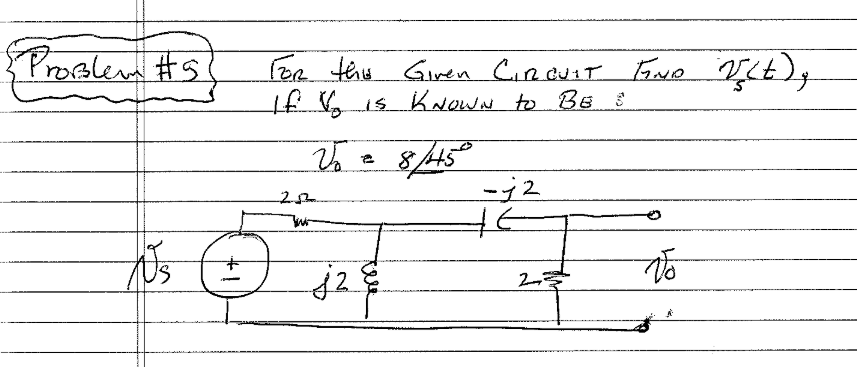 Problem #5 For this Given Circuit Find Vs(t),
If Vo is Known to Be :
Vo = 8/45°
2Ω
-j2
Vs
+
-
j2
2
Vo